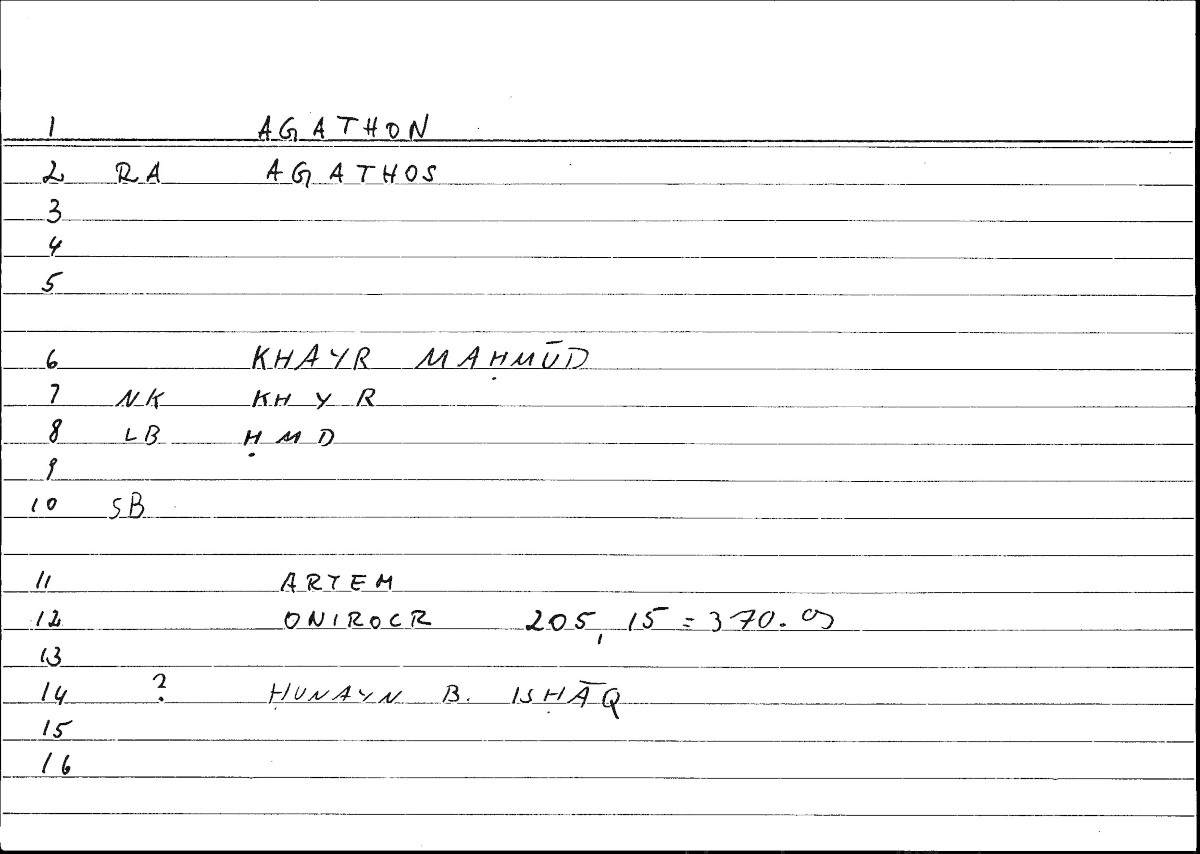 1 AGATHON
2 RA AGATHOS
3
4
5
6 KHAYR MAḤMŪD
7 NK KH Y R
8 LB Ḥ M D
9
10 SB
11 ARTEM
12 ONIROCR 205, 15 = 370.
13
14 ? ḤUNAYN B. ISḤĀQ
15
16